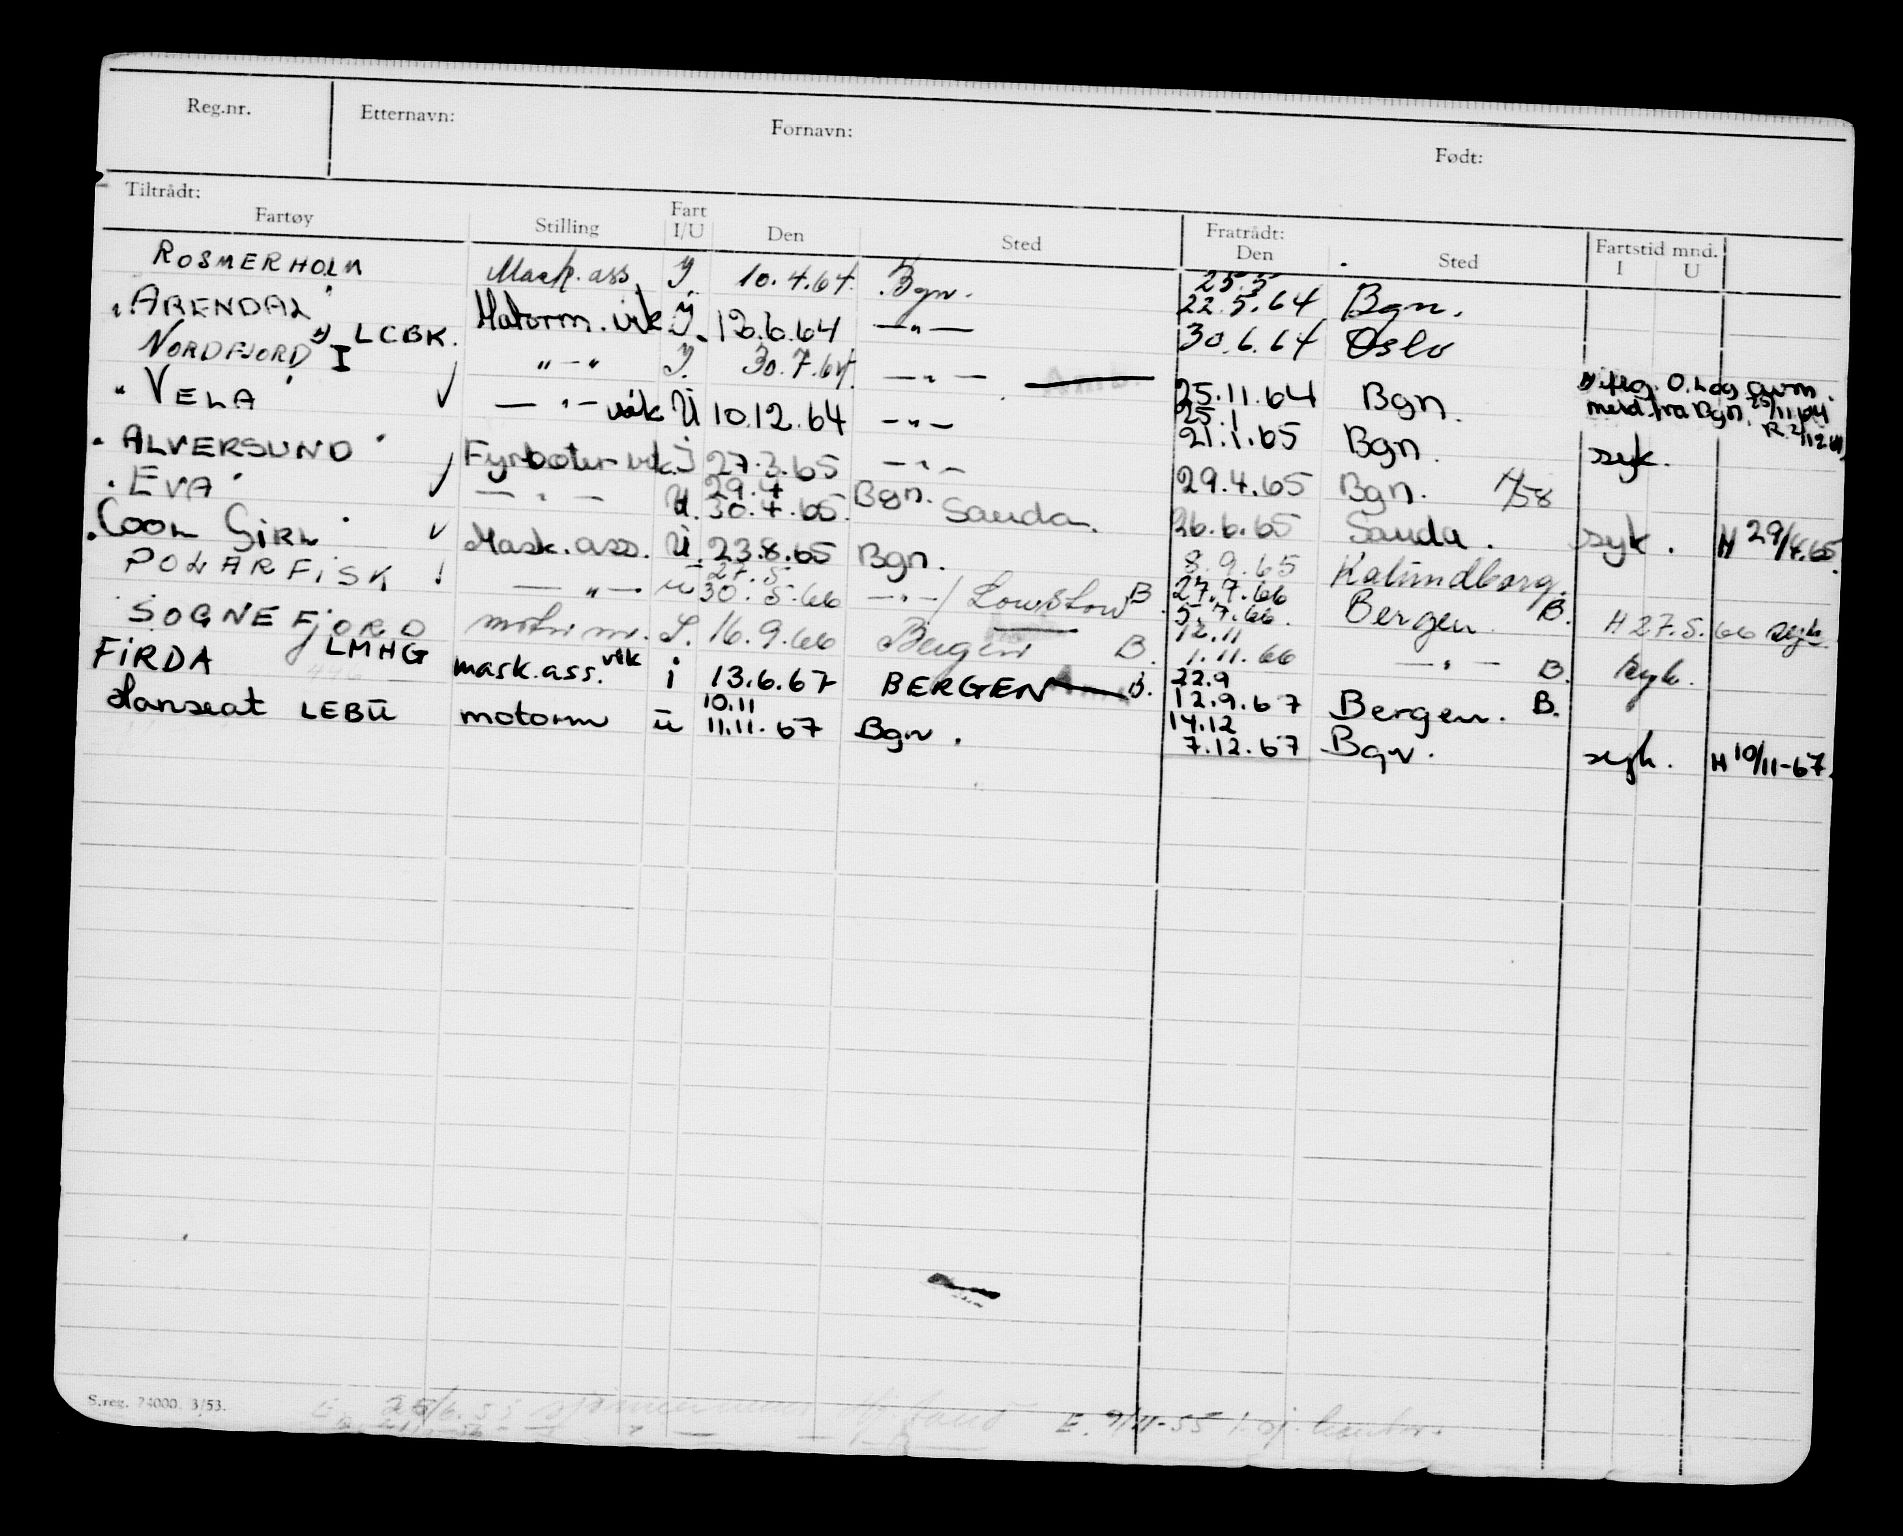 Reg.nr. Etternavn: Fornavn: Født:
Tiltrådt: Fratrådt: Fartstid mnd.
Fartøy Stilling Fart I/U Den Sted Den Sted I U
ROSMERHOLM Mask. ass. I. 10.4.64. Bgn. 25.5 22.5.64 Bgn.
"ARENDAL" LCBK. Motorm. vik I. 12.6.64 —"— 30.6.64 Oslo
NORDFJORD I "—" I. 30.7.64. —"— 25.11.64 Bgn.
"VELA" ✓ —"— vik U 10.12.64 —"— 25.1 21.1.65 Bgn. syk.
"ALVERSUND" Fyrbøter vik. I 27.3.65 —"— 29.4.65 Bgn. H/58
"EVA" ✓ —"— U. 29.4 30.4.65. Bgn. Sauda. 26.6.65 Sauda. syk. H 29/4.65.
"COOL GIRL" ✓ Mask. ass. U. 23.8.65 Bgn. 8.9.65 Kalundborg.
POLARFISK ! —"— U 27.5. 30.5.66 —"—/ B. 27.7.66 5.7.66. Bergen B. H 27.5.66 syk.
SOGNEFJORD I. 16.9.66 Bergen B. 12.11 1.11.66 —"— B. syk.
FIRDA LMHG mask.ass. vik i 13.6.67 BERGEN B. 22.9 12.9.67 Bergen. B.
Hanseat LEBU motorm u 10.11 11.11.67 Bgn. 14.12 7.12.67 Bgn. syk. H 10/11-67.
S.reg. 74000. 3/53.
E. 9/11-55